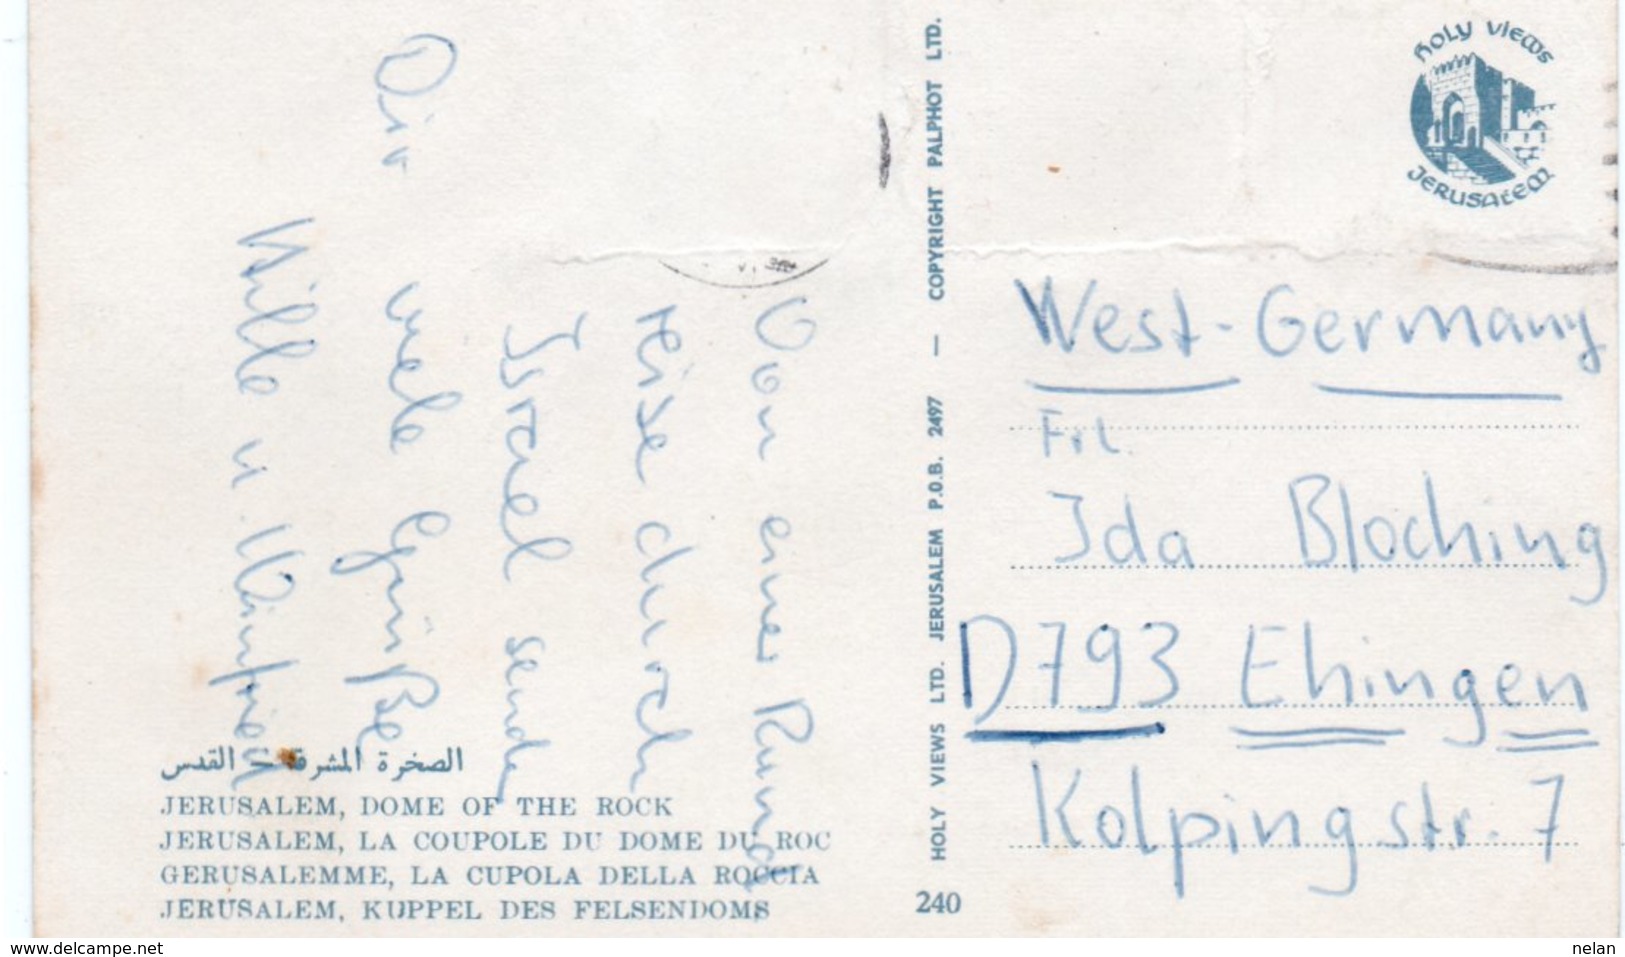 Von einer Rund
reise durch
Israel sende
Dir viele Grüße
Hille u. Winfried
الصخرة المشرفة - القدس
JERUSALEM, DOME OF THE ROCK
JERUSALEM, LA COUPOLE DU DOME DU ROC
GERUSALEMME, LA CUPOLA DELLA ROCCIA
JERUSALEM, KUPPEL DES FELSENDOMS
HOLY VIEWS LTD. JERUSALEM P.O.B. 2497 — COPYRIGHT PALPHOT LTD.
240
HOLY VIEWS
JERUSALEM
West-Germany
Frl.
Ida Bloching
D793 Ehingen
Kolpingstr. 7
www.delcampe.net
nelan